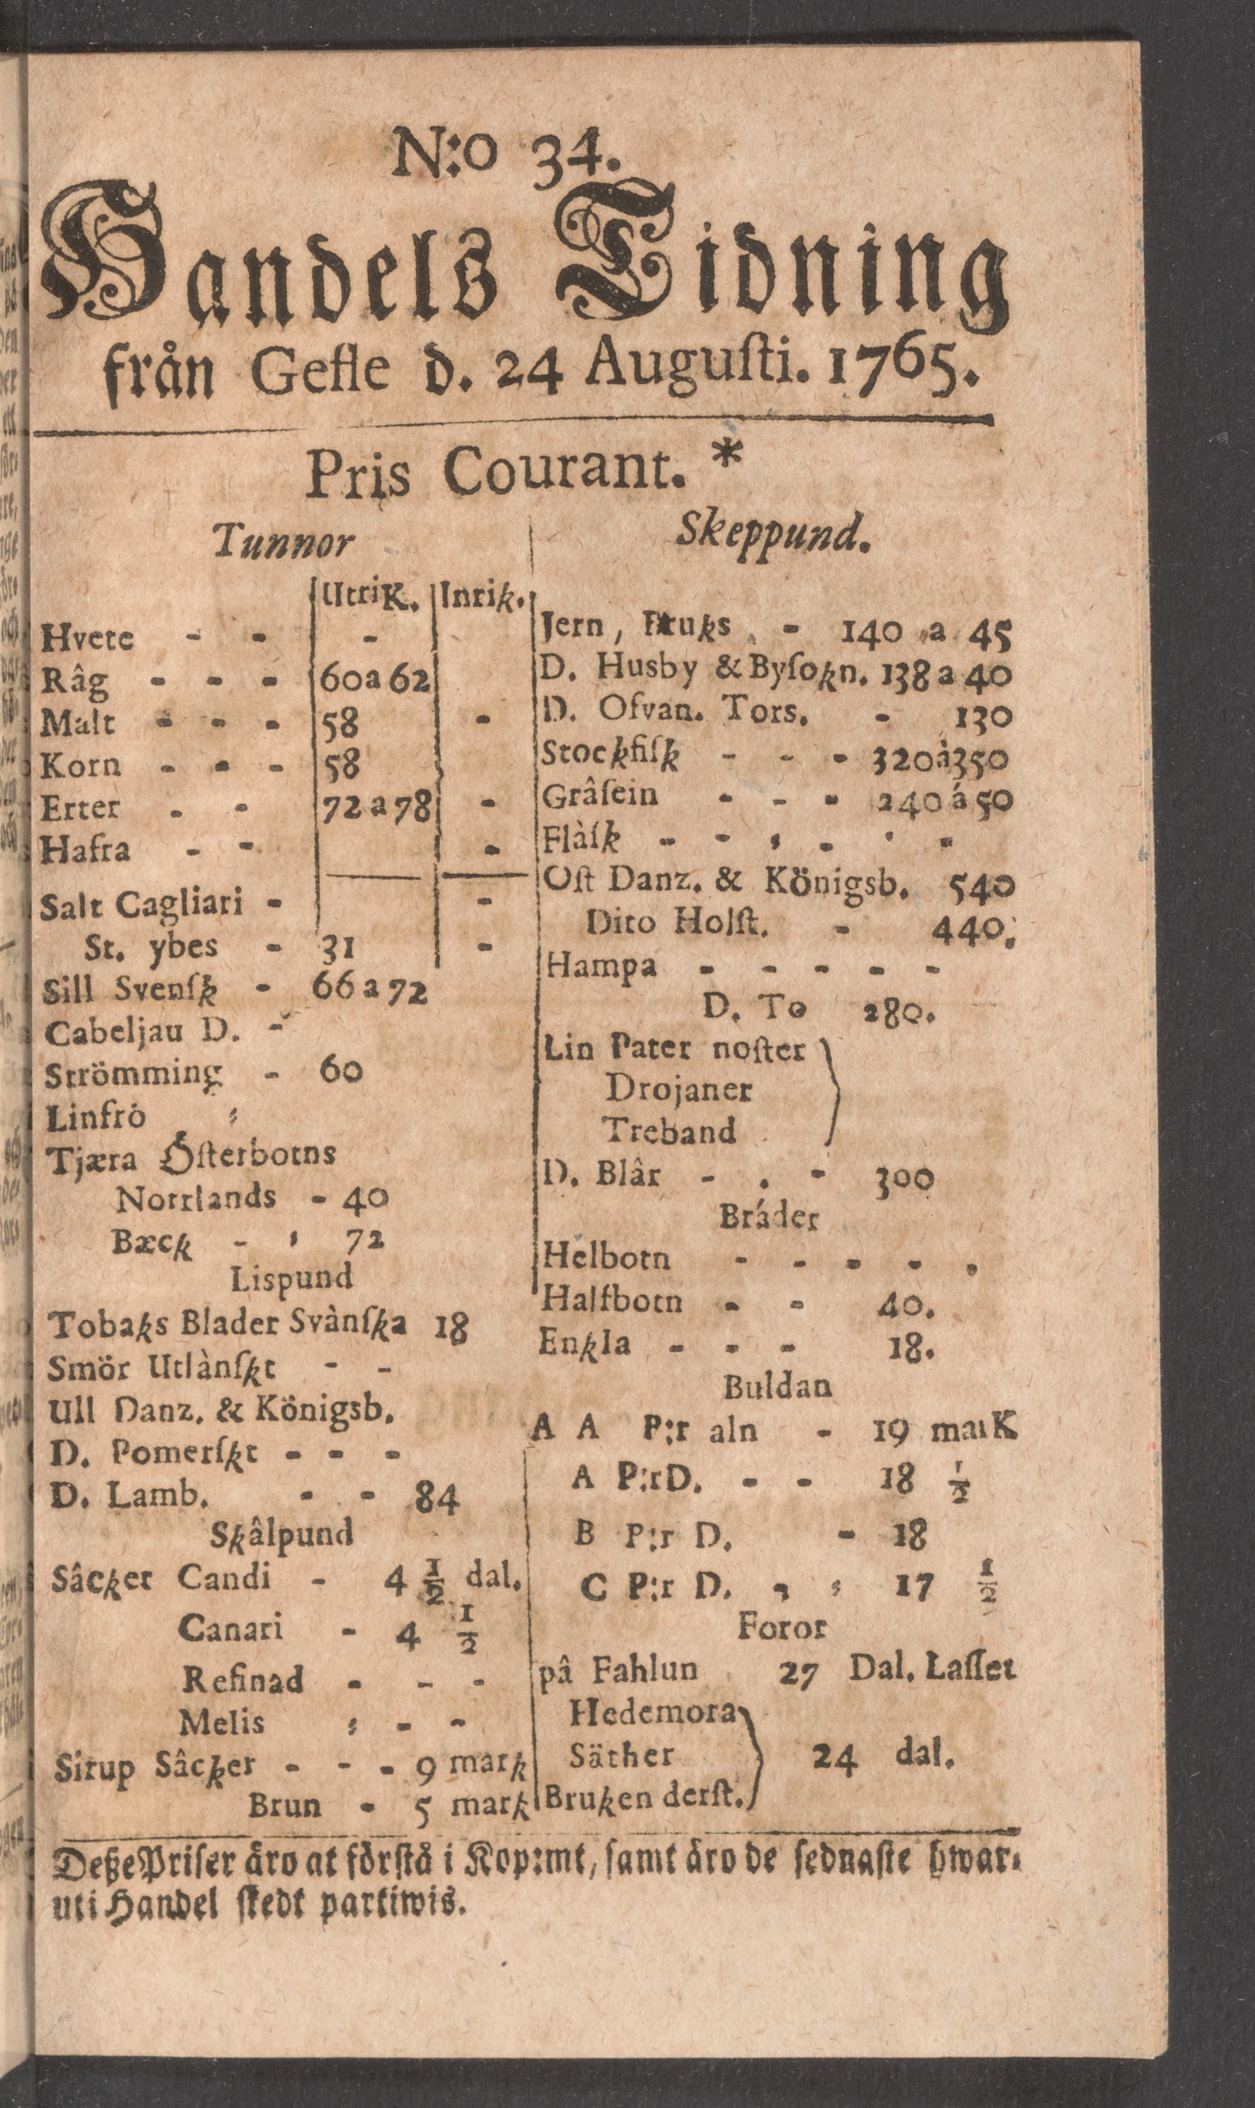 N:o 34.
Handels Tidning
från Gefle d. 24 Augusti. 1765.
Pris Courant. *
Tunnor
Utrik. Inrik.
Hvete - - -
Râg - - - 60 a 62
Malt - - - 58 -
Korn - - - 58
Erter - - 72 a 78 -
Hafra - - -
Salt Cagliari - -
St. ybes - 31 -
Sill Svensk - 66 a 72
Cabeljau D. -
Strömming - 60
Linfrö
Tjæra Österbotns
Norrlands - 40
Bæck - 72
Lispund
Tobaks Blader Svànska 18
Smör Utlànskt - -
Ull Danz. & Königsb.
D. Pomerskt - - -
D. Lamb. - - 84
Skâlpund
Sâcker Candi - 4 1/2 dal.
Canari - 4 1/2
Refinad - - -
Melis - -
Sirup Sâcker - - - 9 mark
Brun - 5 mark
Skeppund.
Jern, Bruks - 140 a 45
D. Husby & Bysokn. 138 a 40
D. Ofvan. Tors. - 130
Stockfisk - - - 320 à 350
Grâsein - - - 240 á 50
Flàsk - - - -
Ost Danz. & Königsb. 540
Dito Holst. - 440.
Hampa - - - - -
D. To 280.
Lin Pater noster
Drojaner
Treband
D. Blâr - . - 300
Bráder
Helbotn - - - - .
Halfbotn - - 40.
Enkla - - - 18.
Buldan
A A P:r aln - 19 mark
A P:r D. - - 18 1/2
B P:r D. - 18
C P:r D. 17 1/2
Foror
pâ Fahlun 27 Dal. Lasset
Hedemora
Säther 24 dal.
Bruken derst.
Deße Priser äro at förstå i Kop:mt, samt äro de sednaste hwar-
uti Handel skedt partiwis.